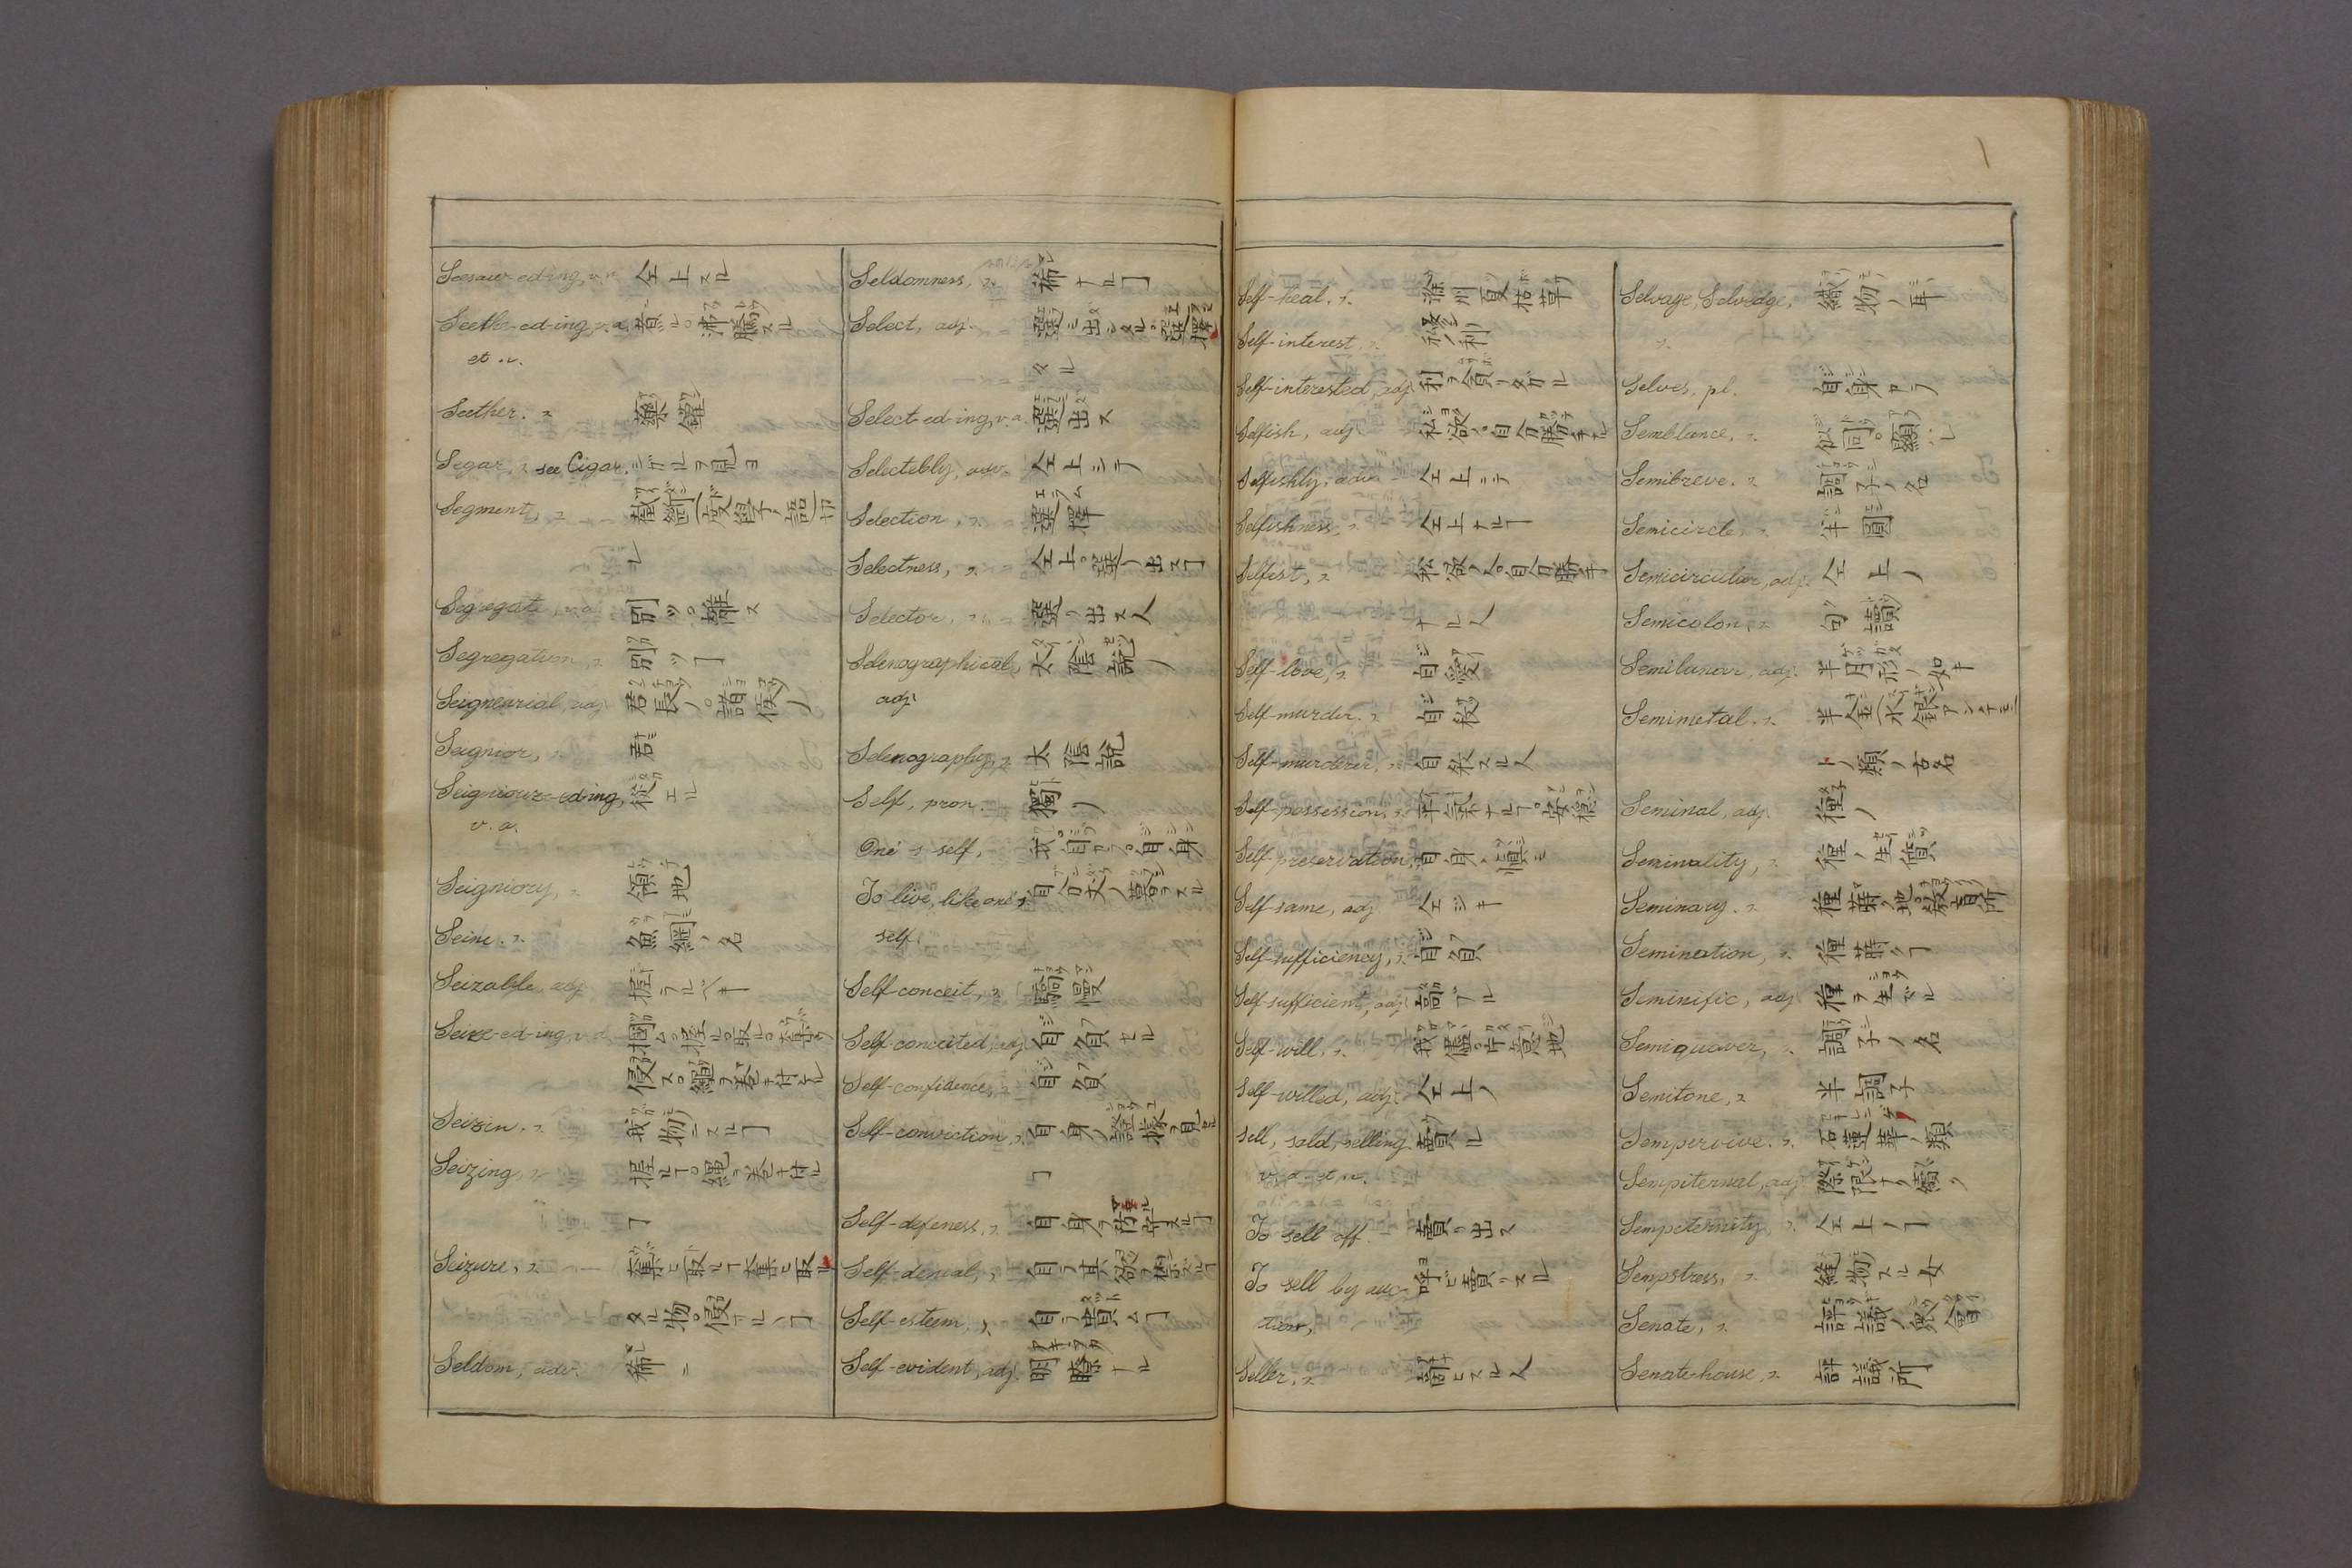 Seesaw-ed-ing, v.n. 仝上スル
Seethe-ed-ing, v.a. 煮ル。沸騰スル
et n.
Seether. n. 藥鑵
Segar, n. see Cigar. シガルヲ見ヨ
Segment, n. 截斷(度學ノ語)切
レ
Segregate, v.a. 別ツ。離ス
Segregation, n. 別ツヿ
Seigneurial, adj. 君長ノ。諸侯ノ
Seignior, n. 君
Seigniour-ed-ing, 従エル
v. a.
Seigniory, n. 領地
Seine. n. 魚網ノ名
Seizable, adj. 握ラルベキ
Seize-ed-ing, v.a. 掴ム。握ル。取ル。奪フ
侵ス。縄ヲ巻キ付ル
Seizin. n. 我物ニスルヿ
Seizing, n. 握ルヿ。縄ヲ巻キ付ル
ヿ
Seizure, n. 奪ヒ取ルヿ奪ヒ取リ
タル物。侵サルヽヿ
Seldom, adv. 稀ニ
Seldomness, n. 稀ナルヿ
Select, adj. 選ミ出シタル。選擇シ
タル
Select-ed-ing, v.a. 選出ス
Selectebly, adv. 仝上シテ
Selection, n. 選擇
Selectness, n. 仝上。選ノ出スヿ
Selector, n. 選ノ出ス人
Selenographical, 太陰說ノ
adj.
Selenography, n. 太陰說
Self, pron. 獨リ
One's self, 我自カラ。自身
To live, like one's 自分丈ノ暮ヲスル
self.
Self-conceit, n. 驕慢
Self-conceited, adj. 自負セル
Self-confidence, n. 自負
Self-conviction, n. 自身ノ證據ヲ見ル
ヿ
Self-defeness, n. 自身ヲ防守スルヿ
Self-denial, n. 自ラ其欲ヲ禁スルヿ
Self-esteem, n. 自ラ貴ムヿ
Self-evident, adj. 明瞭ナル
Self-heal, n. 滁州夏枯草
Self-interest, n. 私ノ利
Self-interested, adj. 利ヲ貪リタガル
Selfish, adj. 私欲ノ。自分勝手ナル
Selfishly, adv. 仝上ニテ
Selfishness, n. 仝上ナルヿ
Selfist, n. 私欲ノ人。自分勝手
ナル人
Self-love, n. 自愛
Self-murder. n. 自殺
Self-murderer, n. 自殺スル人
Self-possession, n. 平氣ナルヿ。安穩
Self-preservation, n. 自身ノ愼ミ
Self-same, adj. 仝ジキ
Self-sufficiency, n. 自負
Self-sufficient, adj. 高ブル
Self-will, n. 我儘。片意地
Self-willed, adj. 仝上ノ
Sell, sold, selling. 賣ル
v. a. et n.
To sell off. 賣リ出ス
To sell by auc- 呼ビ賣リスル
tion,
Seller, n. 商ヒスル人
Selvage, Selvedge, 織物ノ耳
n.
Selves, pl. 自身カラ
Semblance, n. 似同。顯シ
Semibreve. n. 調子ノ名
Semicircle, n. 半圓
Semicircular, adj. 仝上ノ
Semicolon, n. 句讀
Semilunar, adj. 半月形ノ如キ
Semimetal, n. 半金(水銀アンチモニ
ト)類ノ古名
Seminal, adj. 種子ノ
Seminality, n. 種ノ生質
Seminary. n. 種蒔ノ地。教育所
Semination, n. 種蒔クヿ
Seminific, adj. 種ヲ生ズル
Semiquaver, n. 調子ノ名
Semitone, n. 半調子
Sempervive. n. 石蓮華ノ類
Sempiternal, adj. 際限ナク續ク
Sempeternity, n. 仝上ノヿ
Sempstress, n. 縫物スル女
Senate, n. 評議ノ聚會
Senate-house, n. 評議所